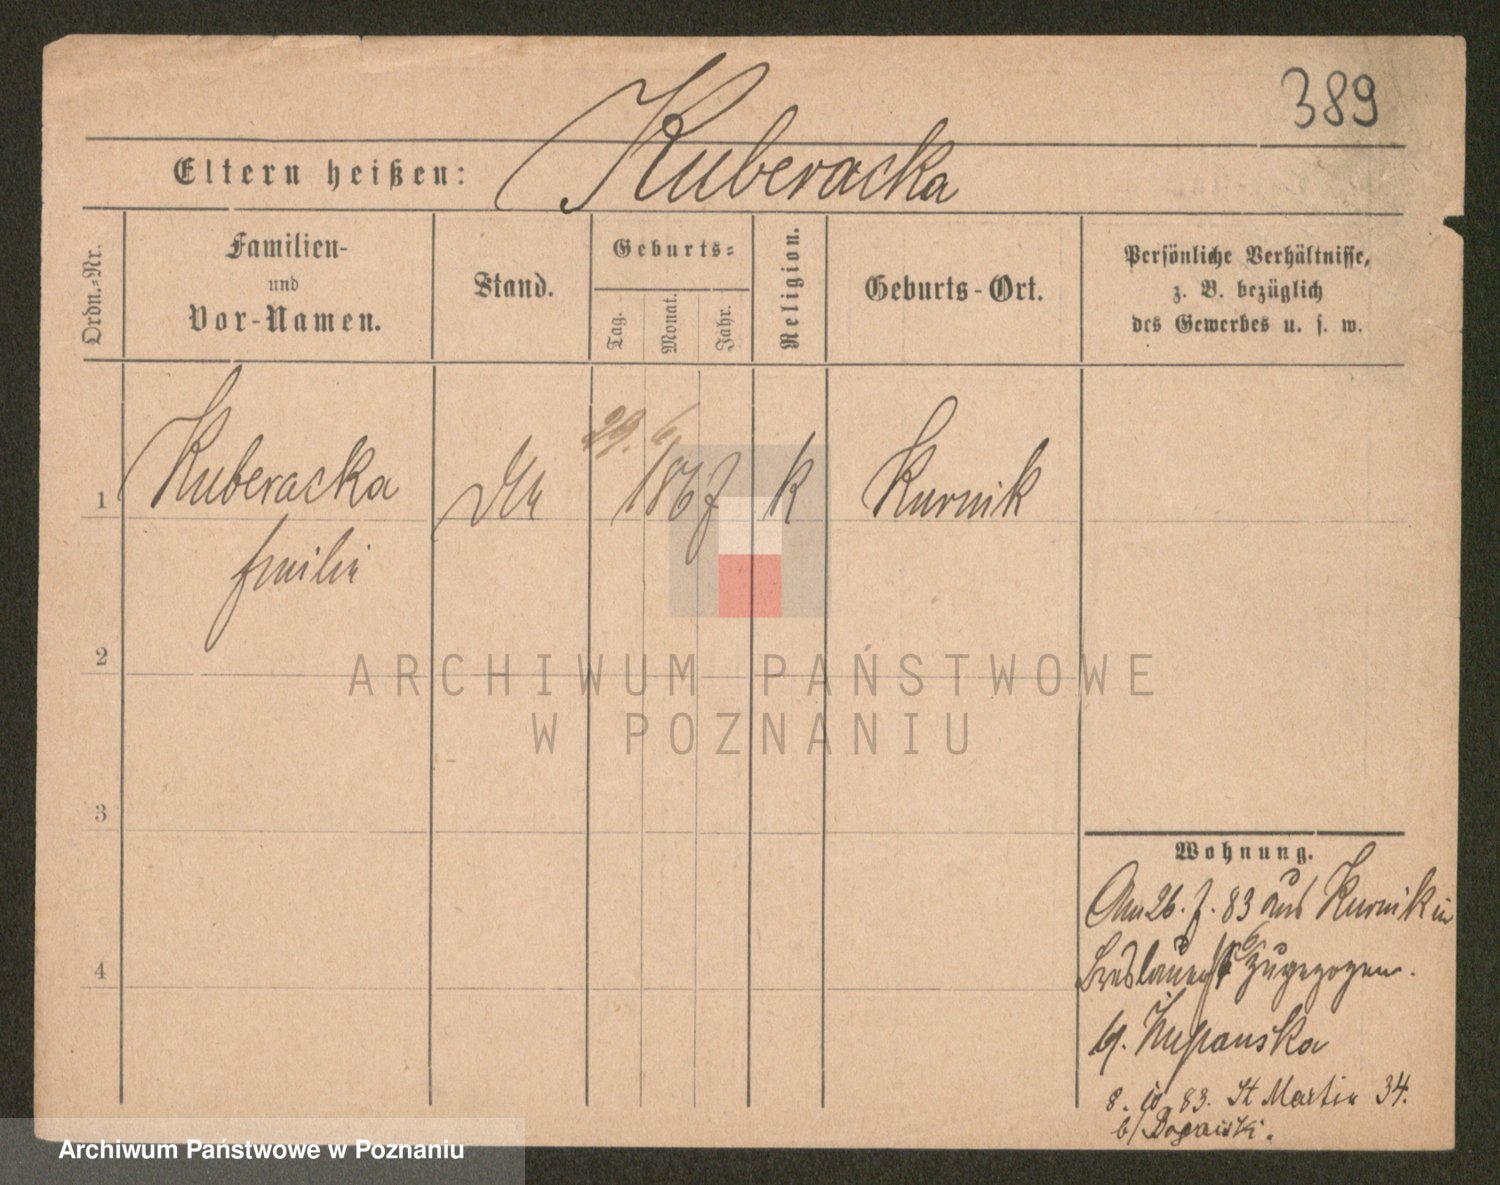 389
Eltern heißen: Kuberacka
Ordn.-Nr.
Familien-
und
Vor-Namen.
Stand.
Geburts-
Tag.
Monat.
Jahr.
Religion.
Geburts-Ort.
Persönliche Verhältnisse,
z. B. bezüglich
des Gewerbes u. s. w.
29. 6
1 Kuberacka 1867 k Kurnik
Emilie
2
3
4
Wohnung.
Am 26. 7. 83 aus Kurnik in
zugezogen.
Zupanska
8. 10 83. St Martin 34.
b/
ARCHIWUM PAŃSTWOWE
W POZNANIU
Archiwum Państwowe w Poznaniu